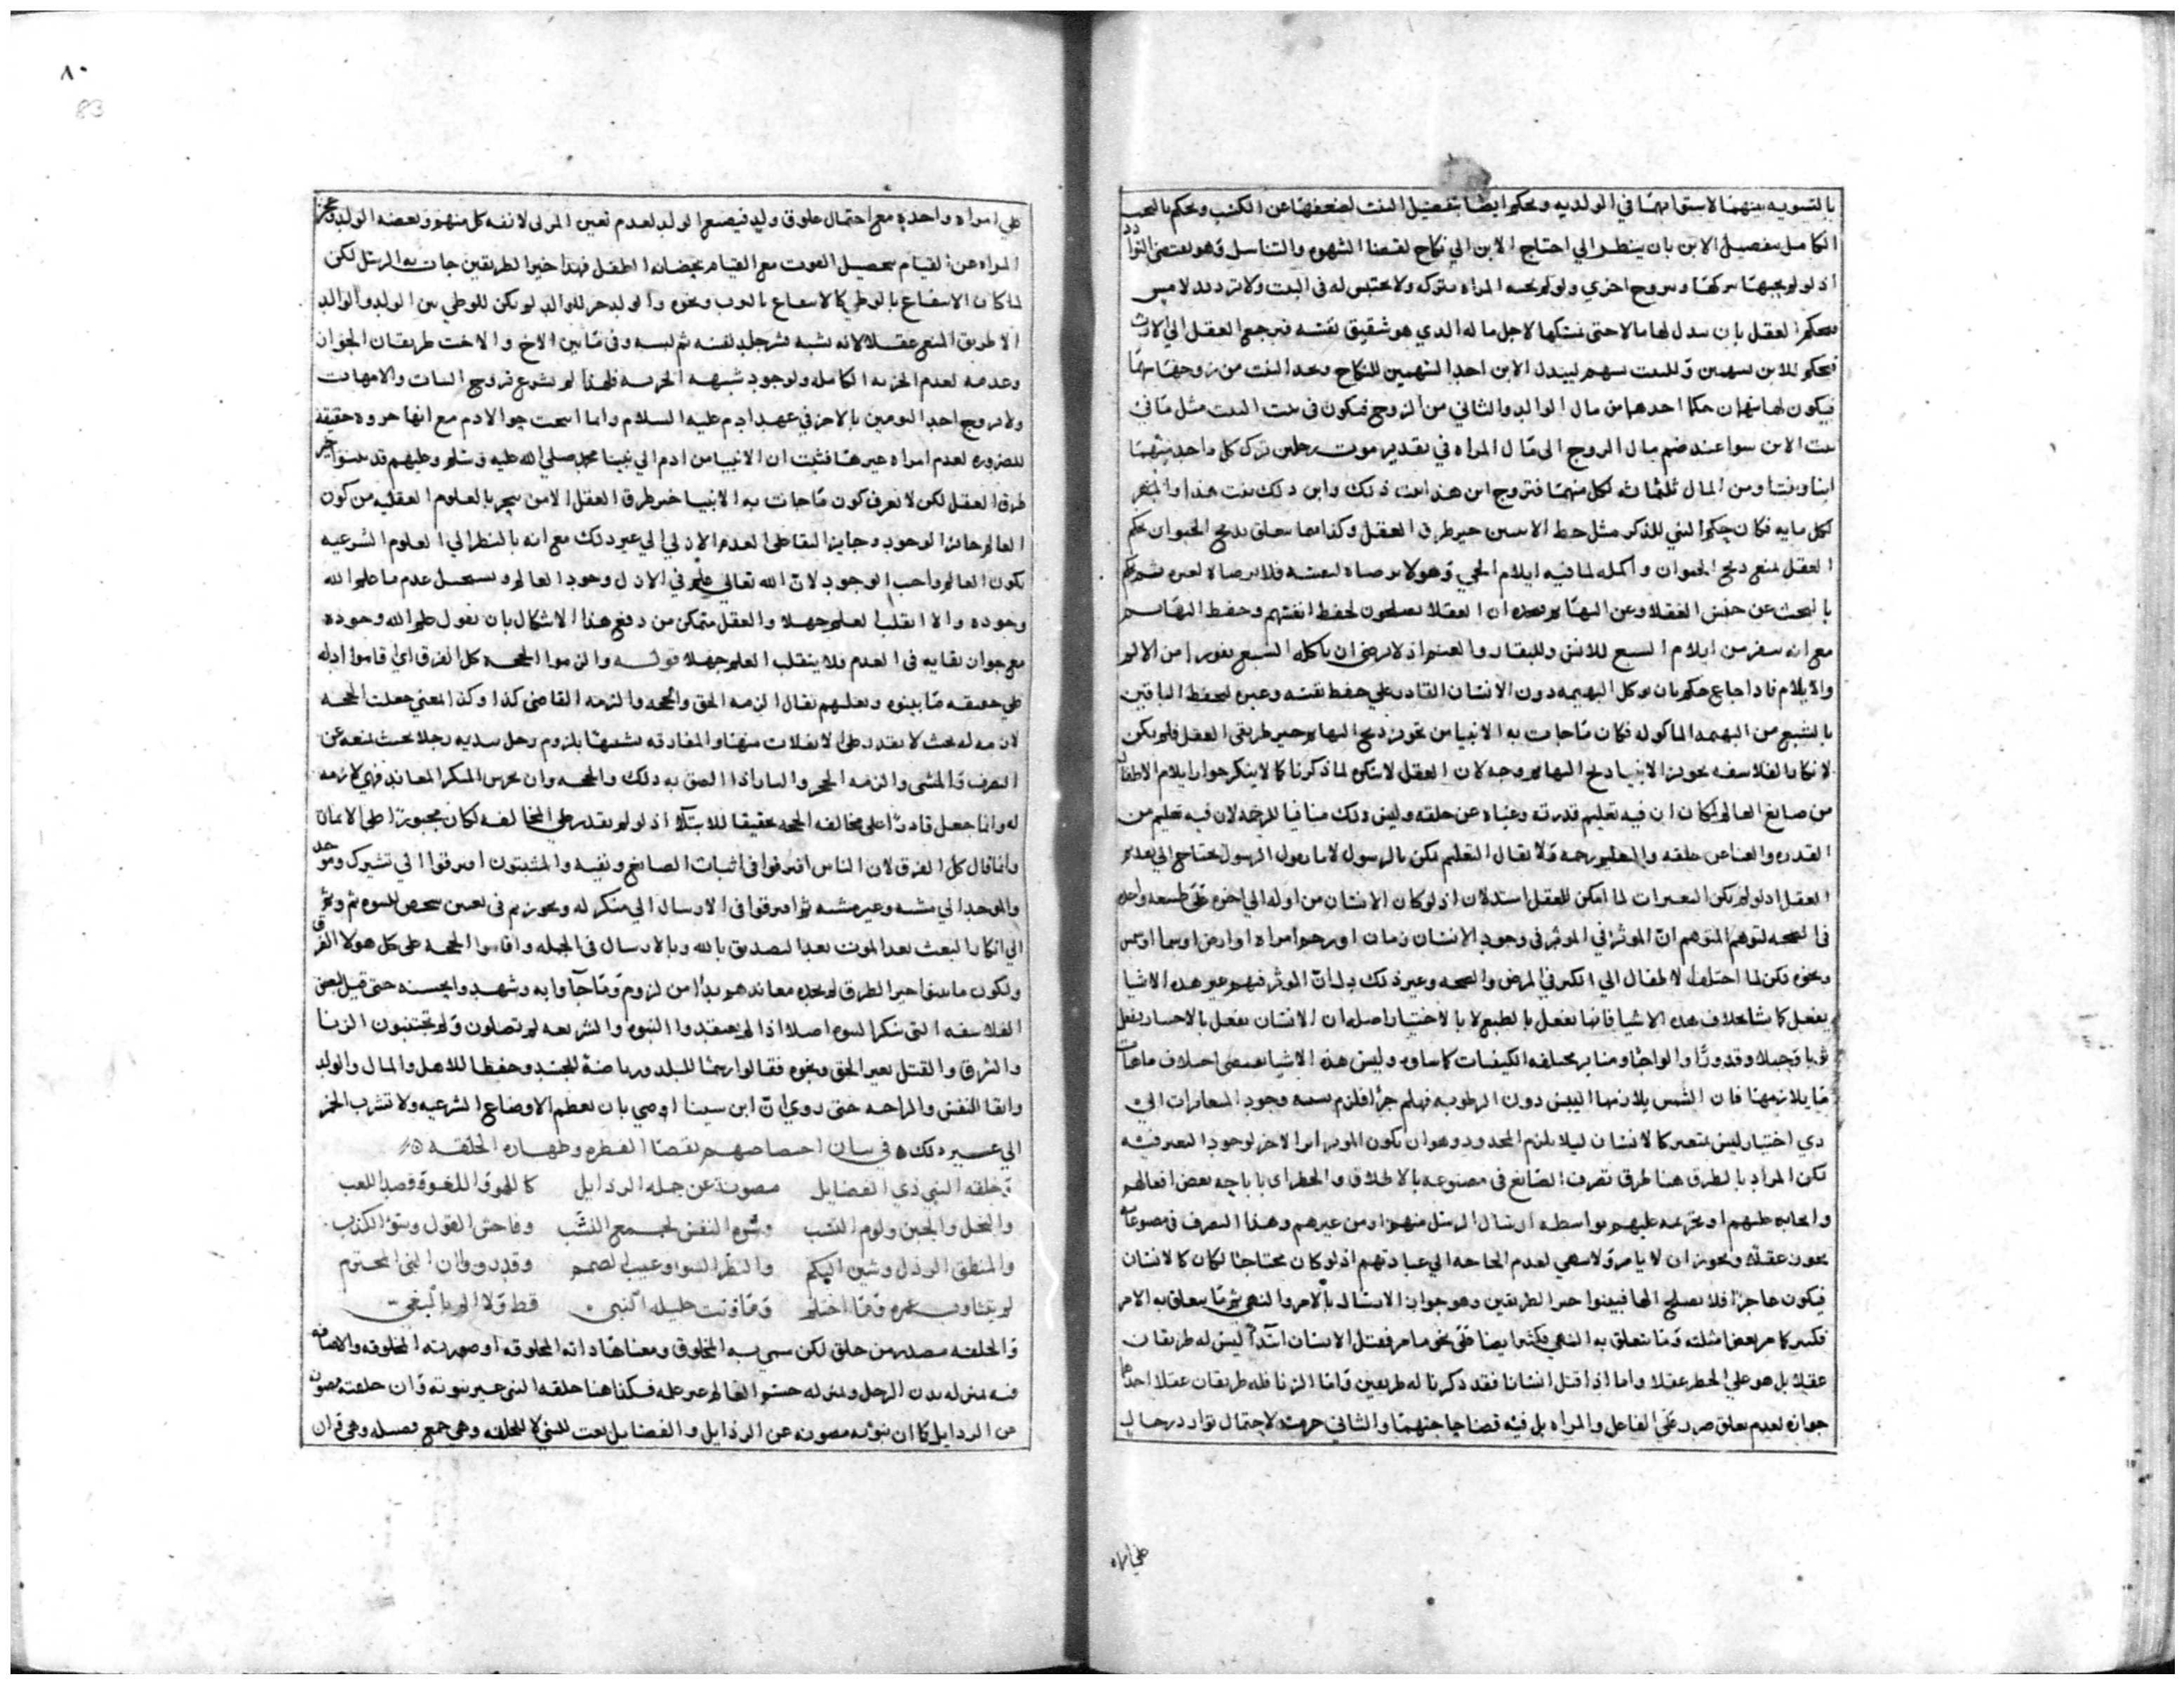 بالتسويه بينهما لاستوايهما في الولديه ويحكم ايضا بتفضيل البنت لضعفها عن الكسب ويحكم بالبحث
الكامل بتفضيل الابن بان ينظر الي احتاج الابن الي نكاح لقضا الشهوه والتناسل وهو يقتضي
اذ لو لم يحبها تركها وتزوج اخري ولو لم تحبه المراه تتركه ولا تحتبس له في البيت ولا ترد يد لامس
فيحكم العقل بان يبدل لها مالا حتى يمسكها لاجل ماله الذي هو شقيق نفسه فيرجع العقل الي الارث
فيحكم للابن سهمين وللبنت سهم ليبدل الابن احد السهمين للنكاح وتجد البنت من زوجها سهما
فيكون لها سهمان حكما احدهما من مال الوالد والثاني من الزوج فيكون في بيت البنت مثل ما في
بيت الابن سوا عند ضم مال الزوج الى مال المراه في تقدير موت رجلين ترك كل واحد منهما
ابنا وبنتا ومن المال ثلثمائه لكل منهما فتزوج ابن هذا بنت ذلك وابن ذلك بنت هذا
لكل مايه فكان حكم النبي للذكر مثل حظ الانثيين خير طرق العقل وكذا مما يتعلق بذبح الحيوان يحكم
العقل بمنع ذبح الحيوان واكله لما فيه ايلام الحي وهو لا يرضاه لنفسه فلا يرضاه لغيره ثم يحكم
بالبحث عن جنس العقلا وعن البهايم ان العقلا يصلحون لحفظ انفسهم وحفظ البهايم
مع انه ينفر من ايلام السبع للانس وللبقر والغنم اذ لا يرضى ان ياكله السبع نفورا من الالم
والايلام فاذا جاع حكم بان يوكل البهيمه دون الانسان القادر علي حفظ نفسه وغيره ليحفظ الباقين
بالشبع من البهيمه الماكوله فكان ما جات به الانبيا من تجويز ذبح البهايم خير طريقى العقل فلم يكن
لانكار الفلاسفه تجويز الانبيا ذبح البهايم وجه لان العقل لا ينكره لما ذكرنا كما لا ينكر جواز ايلام الاطفال
من صانع العالم لمكان ان فيه تعليم قدرته وغناه عن خلقه وليس ذلك منافيا للرحمه لان فيه تعليم من
القدره والغنا عن خلقه والتعليم رحمه ولا يقال التعليم يمكن بالرسول لانا نقول الرسول يحتاج الي تقدير
العقل اذ لو لم يكن التغيرات لما امكن للعقل استدلال اذ لو كان الانسان من اوله الي اخره على طبيعه واحده
في الصحه لتوهم المتوهم ان الموثر في وجود الانسان زمان او رحم امراه او ارض او سما او شمس
ونحوه لكن لما اختلف الاطفال الي الكبر في المرض والصحه وغير ذلك دل ان الموثر فيهم غير هذه الاشيا
يفعل كما شا بخلاف هذه الاشيا فانها تفعل بالطبع لا بالاختيار اصله ان الانسان يفعل بالاختيار فيفعل
ثوبا وجبلا وقدورا والواحا ومنابر مختلفه الكيفيات كما شا
ما يلازمها فان الشمس يلازمها اليبس دون الرطوبه فلزم منه وجود المتغايرات الي
ذي اختيار ليس بمتغير كالانسان ليلا يلزم المحذور وهو ان يكون الموثر اثرا لاخر لوجود التغير فيه
لكن المراد بالطرق هنا طرق تصرف الصانع في مصنوعه بالاطلاق والحظر اي باباحه بعض افعالهم
وايجابه عليهم او تحريمه عليهم بواسطه ارسال الرسل منهم او من غيرهم وهذا التصرف في مصنوعاته
يجوز عقلا ويجوز ان لا يامر ولا ينهي لعدم الحاجه الي عبادتهم اذ لو كان محتاجا لكان كالانسان
فيكون عاجزا فلا يصلح الها فبينوا خير الطريقين وهو جواز الارسال بالامر والنهي ثم ما يتعلق به الامر
فكثير كما مر بعض امثلته وما يتعلق به النهي فكثير ايضا على نحو ما مر فقتل الانسان ابتدا ليس له طريقان
عقلا بل هو على الحظر عقلا واما اذا قتل انسانا فقد ذكرنا له طريقين واما الزنا فله طريقان عقلا احدهما
جوازه لعدم تعلق ضرر على الفاعل والمراه بل فيه قضا حاجتهما والثاني حرمته لاحتمال توارد رجال
على امراه
٨٠
83
على امراه واحده مع احتمال علوق ولد فيضيع الولد لعدم تعين المربي لانفه كل منهم وبغضه الولد وعجز
المراه عن القيام بتحصيل القوت مع القيام بحضانه الطفل فهذا خير الطريقين جات به الرسل لكن
لما كان الانتفاع بالوطي كالانتفاع بالثوب ونحوه والولد جزو للوالد لم يكن للوطي بين الولد والوالد
الا طريق المنع عقلا لانه يشبه نشر جلد نفسه ثم لبسه وفي ما بين الاخ والاخت طريقان الجواز
وعدمه لعدم الجزيه الكامله ولوجود شبهه الجزيه فلهذا لم يشرع تزوج البنات والامهات
ولا تزوج احد التومين بالاخر في عهد ادم عليه السلام وانما ابيحت حوا لادم مع انها جزوه حقيقة
للضروره لعدم امراه غيرها فثبت ان الانبيا من ادم الي نبينا محمد صلي الله عليه وسلم وعليهم قد بينوا خير
طرق العقل لكن لا يعرف كون ما جات به الانبيا خير طرق العقل الا من تبحر بالعلوم العقليه من كون
العالم جائز الوجود وجايز البقا على العدم الازلي الي غير ذلك مع انه بالنظر الي العلوم الشرعيه
يكون العالم واجب الوجود لان الله تعالي علم في الازل وجود العالم ويستحيل عدم ما علم الله
وجوده والا انقلب العلم جهلا والعقل متمكن من دفع هذا الاشكال بان نقول علم الله وجوده
مع جواز بقايه في العدم فلا ينقلب العلم جهلا قوله والزموا الحجه كل الفرق اي اقاموا ادله
على حقيقه ما بينوه وبعثهم يقال الزمه الحق والحجه والزمه القاضى كذا وكذا المعني جعلت الحجه
لازمه له بحيث لا يقدر على الانفلات منها والمفارقه تشبيها بلزوم رجل بيديه رجلا بحيث يمنعه عن
التصرف والمشى والزمه الحجر والباب اذا الصق به ذلك والحجه وان خرس المنكر المعاند فهي لازمه
له وانما جعل قادرا على مخالفه الحجه تحقيقا للابتلا اذ لو لم يقدر على المخالفه لكان مجبورا على الايمان
وانما قال كل الفرق لان الناس افترقوا في اثبات الصانع ونفيه والمثبتون افترقوا الي تشريك وموحد
والموحد الي مشبه وغير مشبه ثم افترقوا في الارسال الي منكر له ومجوز ثم في تعيين شخص للنبوه ثم وثم
الي انكار البعث بعد الموت بعد التصديق بالله وبالارسال في الجمله واقاموا الحجه على كل هولا الفرق
ولكون ما بينوا خير الطرق لم يجد معاندهم بدا من لزوم ما جاوا به وشهد وايحسنه حتى قيل لبعض
الفلاسفه التي تنكر النبوه اصلا اذا لم تعتقدوا النبوه والشريعه لم تصلون ولم تجتنبون الزنا
والسرقه والقتل بغير الحق ونحوه فقالوا رسما للبلد ورياضة للجسد وحفظا للاهل والمال والولد
وابقا للنفس والراحه حتى روي ان ابن سينا اوصي بان تعظم الاوضاع الشرعيه ولا تشرب الخمر
الي غير ذلك ٥ في بيان اختصاصهم بقضا الفطره وطهاره الخلقه ٥
وخلقه النبي ذي الفضايل مصونة عن جمله الرذايل كاللهو واللغو وقصد اللعب
والبخل والجبن ولوم النسب وشره النفس لجمع النشب وفاحش القول وسوء الكذب
والمنطق الرذل وشين البكم والنظر السوء وعيب الصمم وقدر وفان النبي المحترم
لم يتثاوب عمره وما احتلم وما زنت حليله النبي قط ولا الم بالبغي
والخلقه مصدر من خلق لكن سمي به المخلوق ومعناها ذاته المخلوقه او صورته المخلوقه والاضافه
فيه بمنزله بدن الرجل وبمنزله حسن العالم غير علمه فكذا هنا خلقه النبي غير نبوته وان خلقته مصونه
عن الرذايل كما ان نبوته مصونه عن الرذايل والفضايل نعت للنبي لا للخلقه وهي جمع فضيله وهي قران